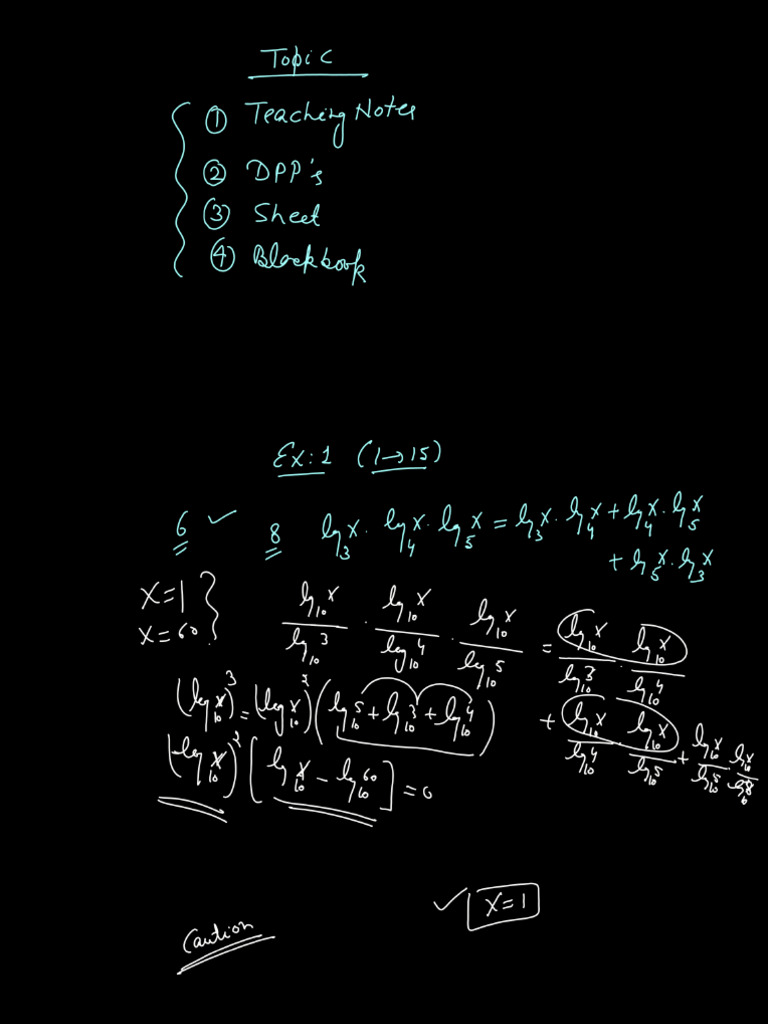 Topic
① Teaching Notes
② DPP's
③ Sheet
④ Blackbook
Ex:1 (1→15)
6 ✓ 8 log₃x · log₄x · log₅x = log₃x · log₄x + log₄x · log₅x
+ log₅x · log₃x
x=1
x=60
log₁₀x/log₁₀3 · log₁₀x/log₁₀4 · log₁₀x/log₁₀5 = log₁₀x/log₁₀3 · log₁₀x/log₁₀4
+ log₁₀x/log₁₀4 · log₁₀x/log₁₀5 + log₁₀x/log₁₀5 ·
(log₁₀x)³ = (log₁₀x)² (log₁₀5 + log₁₀3 + log₁₀4)
(log₁₀x)² [log₁₀x - log₁₀60] = 0
✓ x=1
Caution